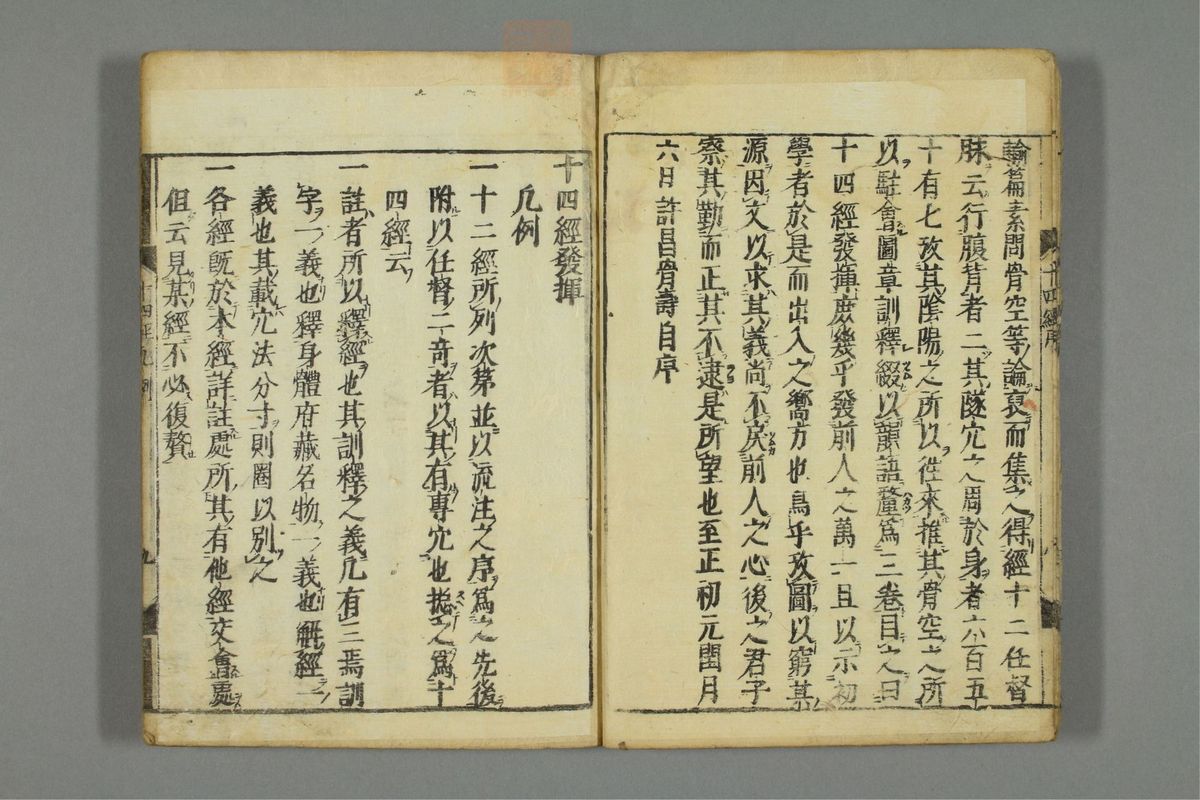 輸篇素問骨空等論裒而集之得經十二任督
脉云行腹背者二其隧穴之周於身者六百五
十有七攷其陰陽之所以徃來推其骨空之所
以駐會圖章訓釋綴以韻語釐爲三卷目之曰
十四經發揮庶幾乎發前人之萬一且以示初
學者於是而出入之嚮方也烏乎攷圖以窮其
源因文以求其義尚不戾前人之心後之君子
察其勤而正其不逮是所望也至正初元閏月
六日許昌滑壽自序
十四經發揮
凡例
一十二經所列次第並以流注之序爲之先後
附以任督二奇者以其有專穴也揔之爲十
四經云
一註者所以釋經也其訓釋之義凡有三焉訓
字一義也釋身體府藏名物一義也觧經一
義也其載穴法分寸則圈以別之
一各經旣於本經詳註處所其有他經交會處
但云見某經不必復贅
十四經序
十四經凡例
九